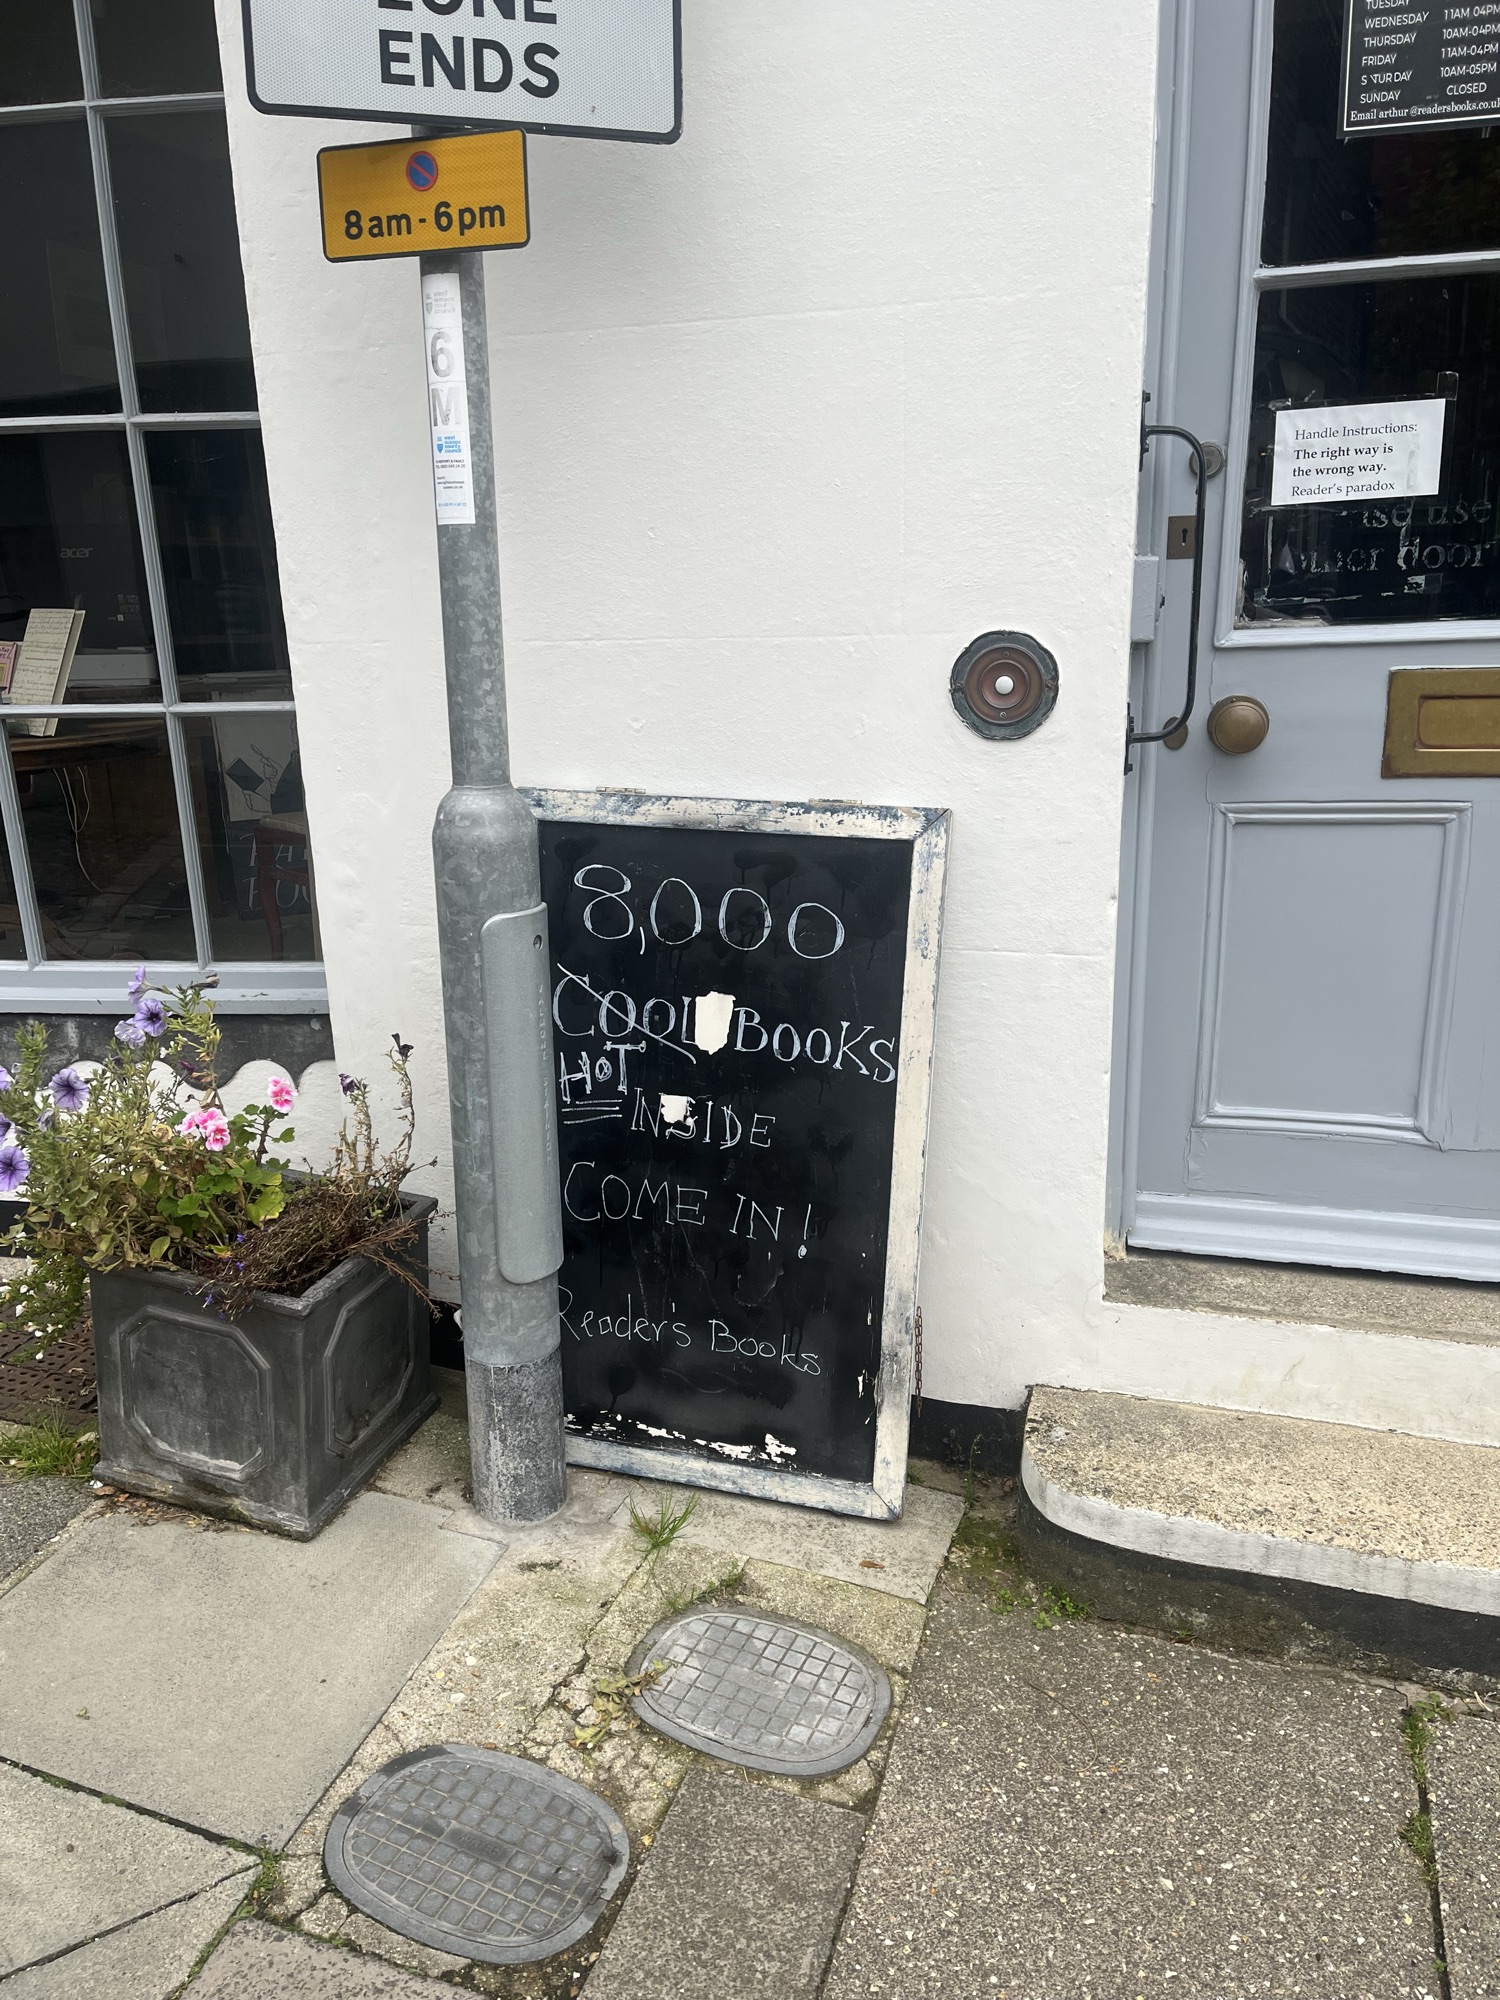 ENDS
8am - 6pm
6
M
west
sussex
county
council
acer
TUESDAY
WEDNESDAY 11AM-04PM
THURSDAY 10AM-04PM
FRIDAY 11AM-04PM
SATURDAY 10AM-05PM
SUNDAY CLOSED
Email arthur@readersbooks.co.uk
Handle Instructions:
The right way is
the wrong way.
Reader's paradox
use
door
8,000
COOL BOOKS
HOT
INSIDE
COME IN!
Reader's Books